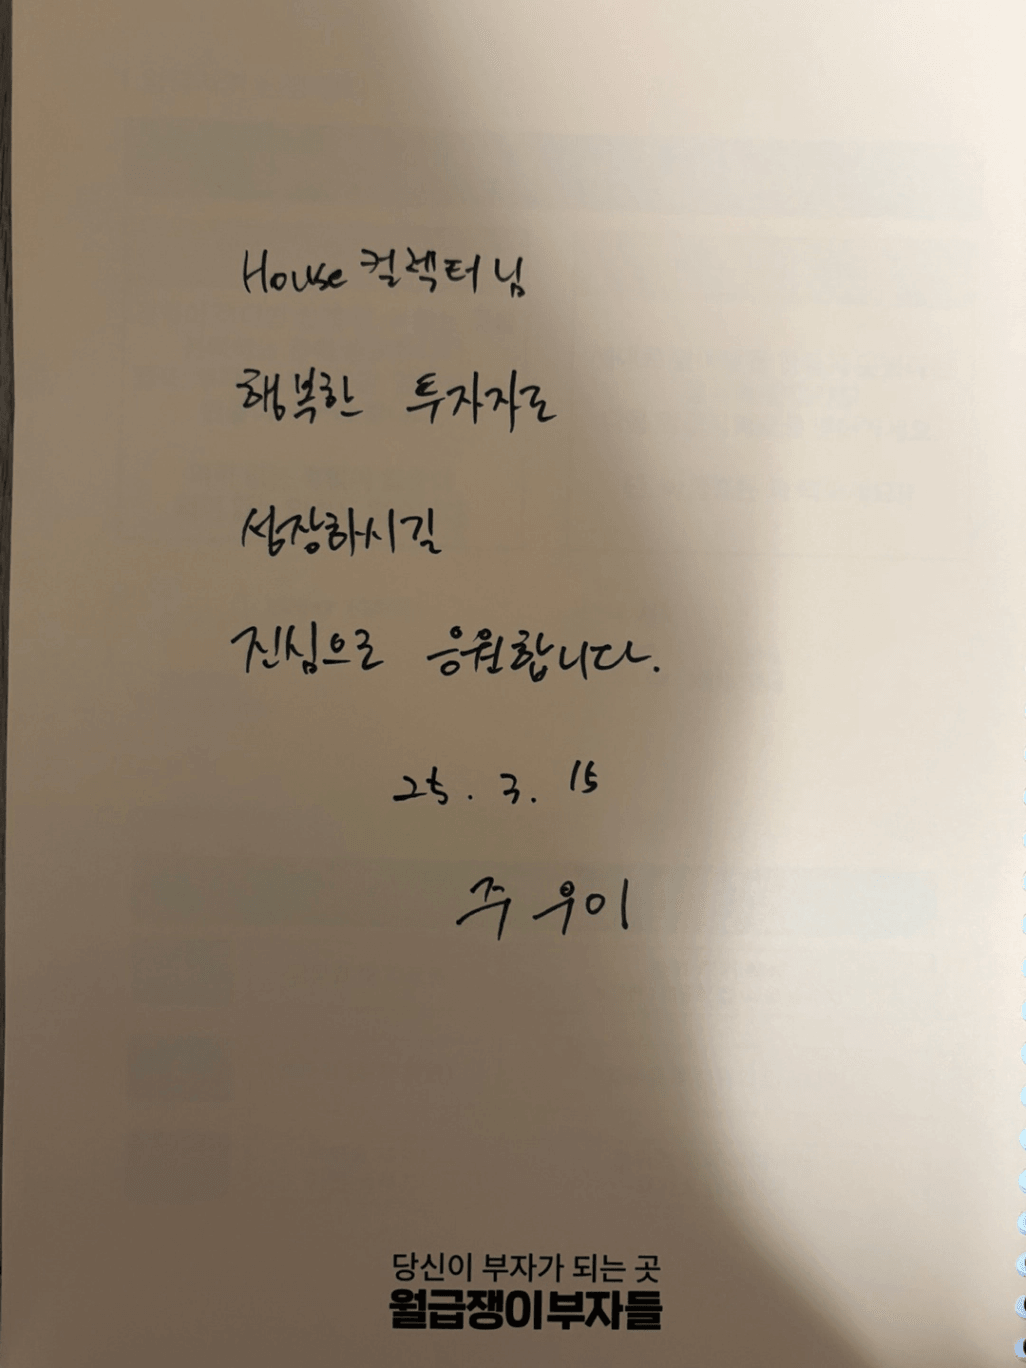 House 컬렉터님
행복한 투자자로
성장하시길
진심으로 응원합니다.
25. 3. 15
주우이
당신이 부자가 되는 곳
월급쟁이부자들